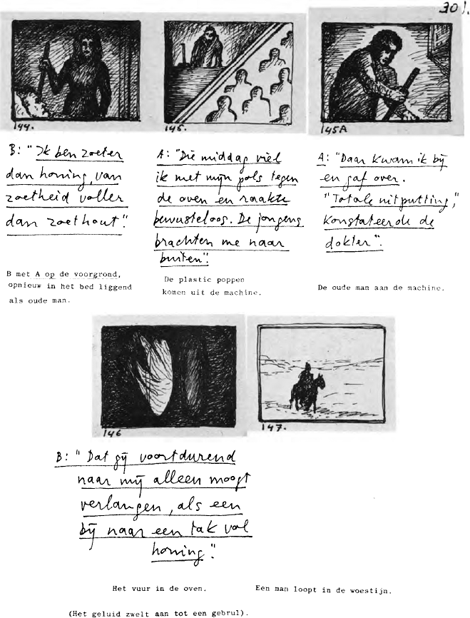 301.
144.
145.
145A
B: "Ik ben zoeter
dan honing, van
zoetheid voller
dan zoethout".
A: "Die middag viel
ik met mijn pols tegen
de oven en raakte
bewusteloos. De jongens
brachten me naar
buiten".
A: "Daar kwam ik bij
en gaf over.
"Totale uitputting",
konstateerde de
dokter".
B met A op de voorgrond,
opnieuw in het bed liggend
als oude man.
De plastic poppen
komen uit de machine.
De oude man aan de machine.
146
147.
B: "Dat gij voortdurend
naar mij alleen moogt
verlangen, als een
bij naar een tak vol
honing".
Het vuur in de oven.
Een man loopt in de woestijn.
(Het geluid zwelt aan tot een gebrul).